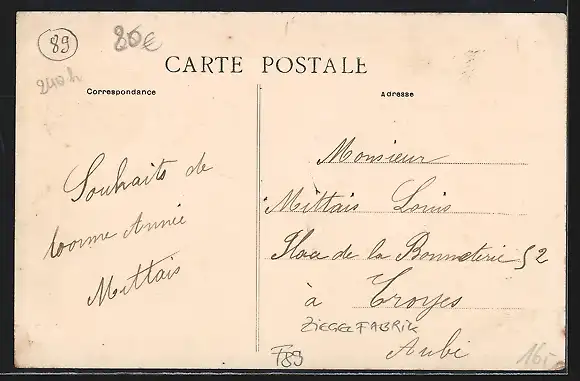 89
80€
240h
CARTE POSTALE
Correspondance
Adresse
Souhaits de
bonne Année
Mittais
Monsieur
Mittais Louis
Place de la Bonneterie 52
à Troyes
ZIEGELFABRIK
Aube
F89
16,-